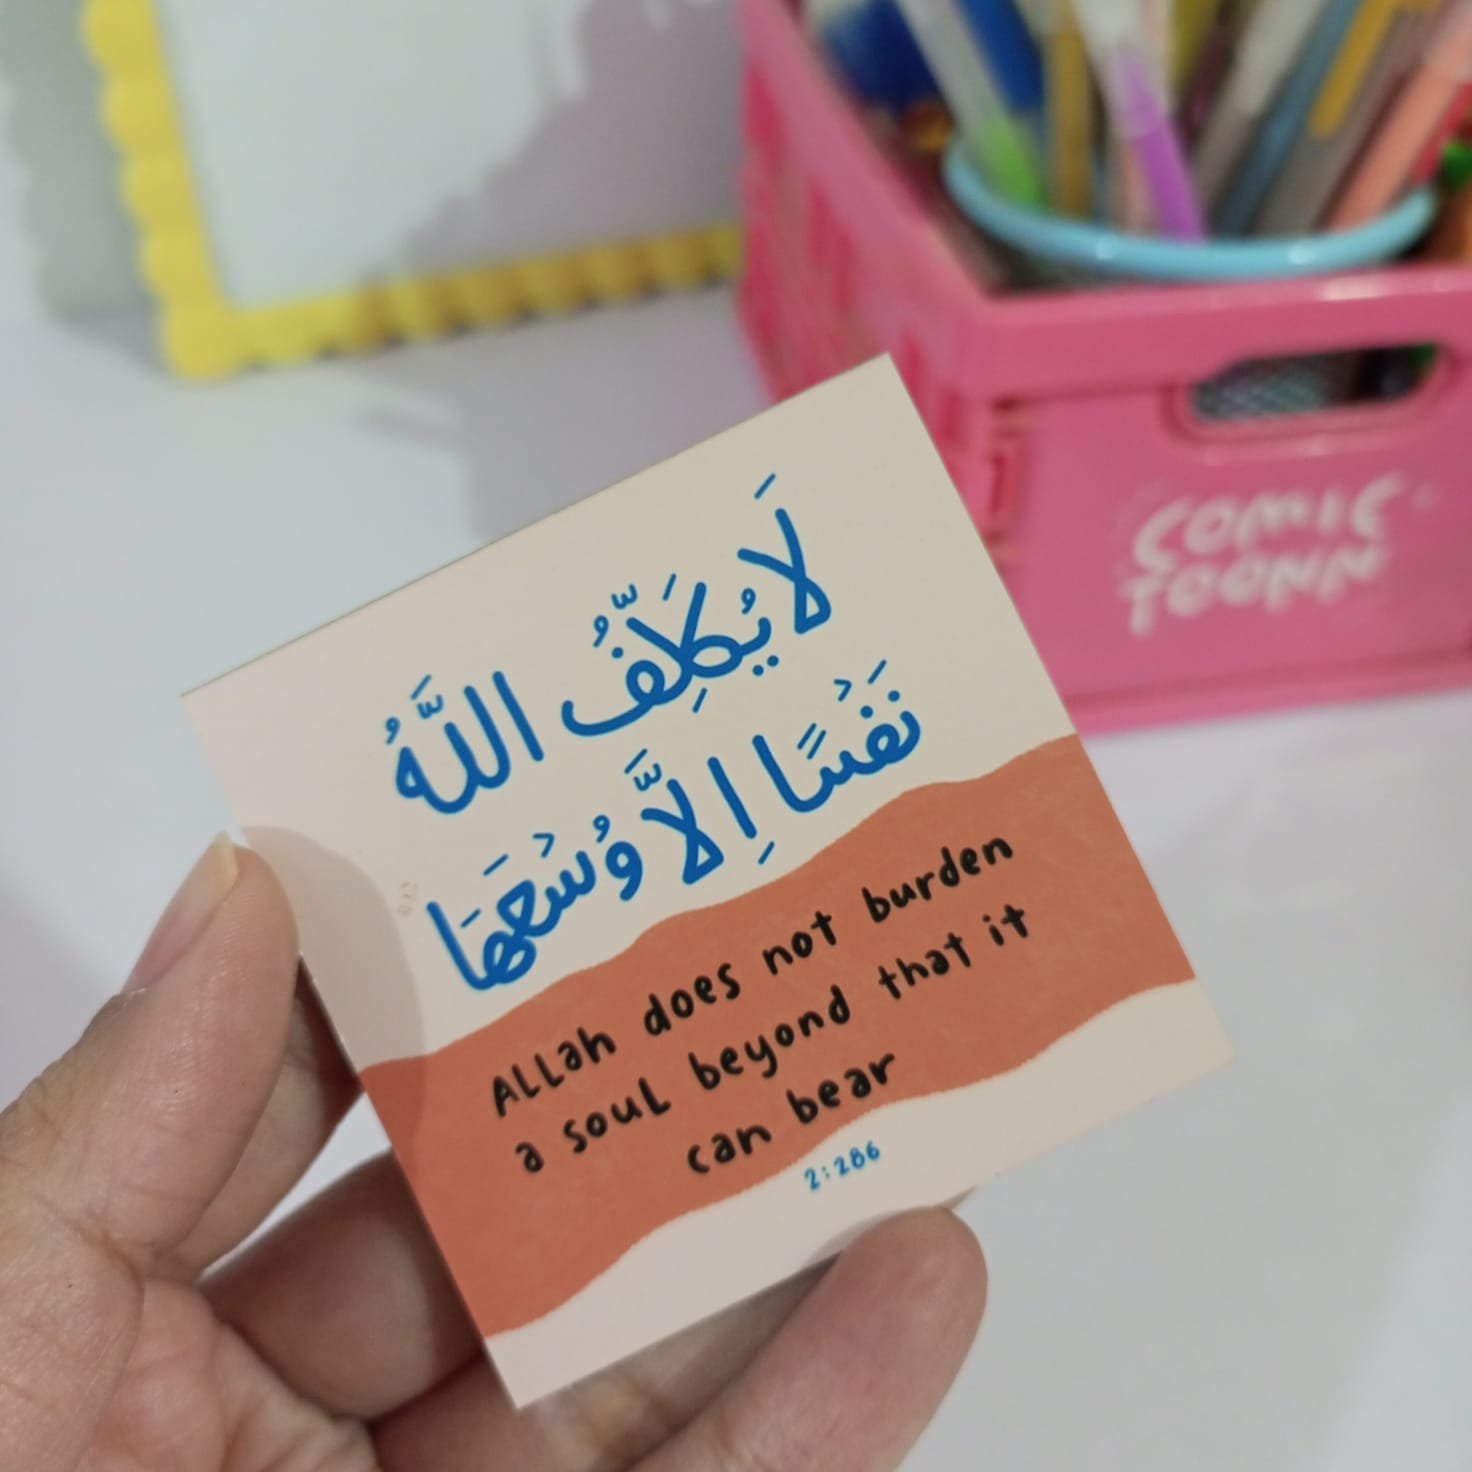 لَا يُكَلِّفُ اللَّهُ
نَفْسًا اِلَّا وُسْعَهَا
ALLah does not burden
a souL beyond that it
can bear
2:286
COMIC
TOONN